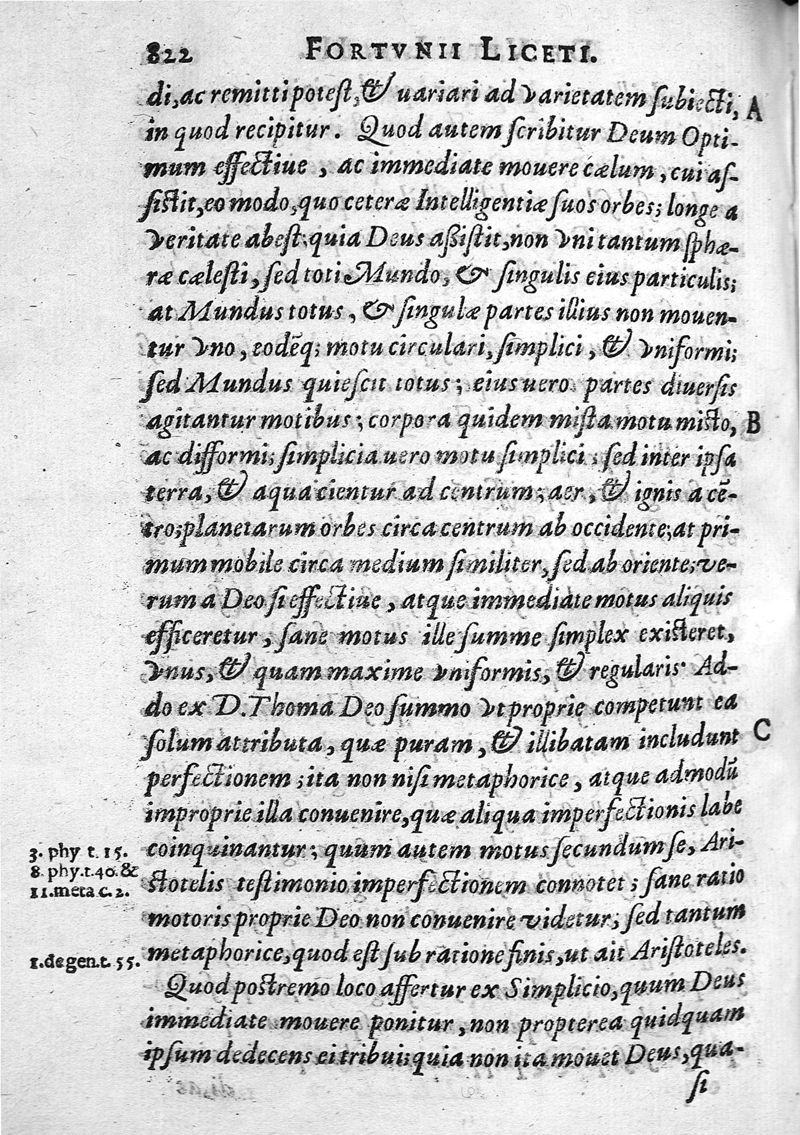 822 FORTVNII LICETI.
di, ac remitti potest, & uariari ad varietatem subiecti, A
in quod recipitur. Quod autem scribitur Deum Opti-
mum effectiue, ac immediate mouere cælum, cui as-
sistit, eo modo, quo ceteræ Intelligentiæ suos orbes; longe a
veritate abest: quia Deus assistit, non vni tantum sphæ-
ræ cælesti, sed toti Mundo, & singulis eius particulis;
at Mundus totus, & singulæ partes illius non mouen-
tur vno, eodēq; motu circulari, simplici, & vniformi;
sed Mundus quiescit totus; eius uero partes diuersis
agitantur motibus; corpora quidem mista motu misto, B
ac difformi; simplicia uero motu simplici; sed inter ipsa
terra, & aqua cientur ad centrum; aer, & ignis a cē-
tro; planetarum orbes circa centrum ab occidente; at pri-
mum mobile circa medium similiter, sed ab oriente; ve-
rum a Deo si effectiue, atque immediate motus aliquis
efficeretur, sane motus ille summe simplex existeret,
vnus, & quam maxime vniformis, & regularis. Ad-
do ex D. Thoma Deo summo vt proprie competunt ea
solum attributa, quæ puram, & illibatam includunt C
perfectionem; ita non nisi metaphorice, atque admodū
improprie illa conuenire, quæ aliqua imperfectionis labe
3. phy t. 15. coinquinantur; quum autem motus secundum se, Ari-
8. phy. t. 40. & stotelis testimonio imperfectionem connotet; sane ratio
11. meta c. 2. motoris proprie Deo non conuenire videtur; sed tantum
1. de gen. t. 55. metaphorice, quod est sub ratione finis, ut ait Aristoteles.
Quod postremo loco affertur ex Simplicio, quum Deus
immediate mouere ponitur, non propterea quidquam
ipsum dedecens ei tribui; quia non ita mouet Deus, qua-
si